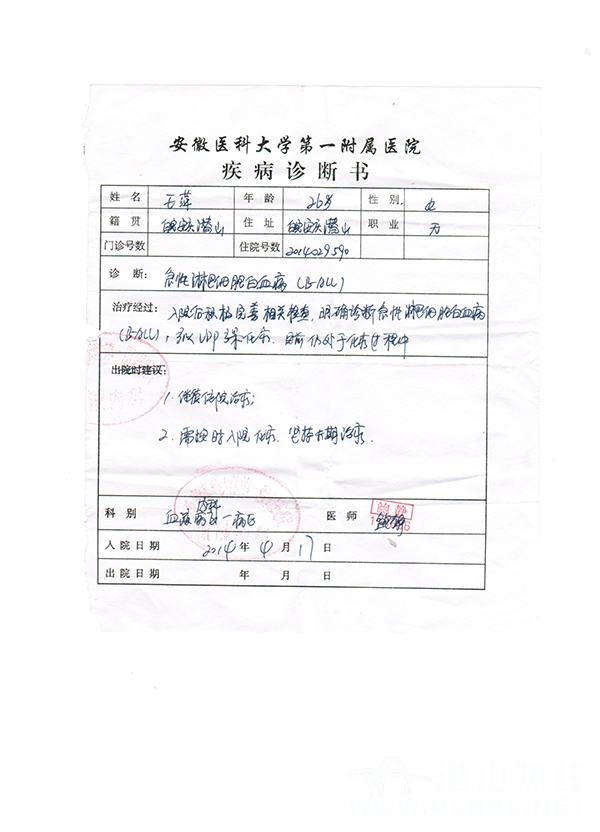 安徽医科大学第一附属医院
疾病诊断书
姓名 王萍 年龄 26岁 性别 女
籍贯 皖安庆潜山 住址 皖安庆潜山 职业 无
门诊号数 住院号数 2014029590
诊断: 急性淋巴细胞白血病 (B-ALL)
治疗经过: 入院后积极完善相关检查, 明确诊断急性淋巴细胞白血病
(B-ALL), 予以 VDP 化疗. 目前仍处于化疗过程中
出院时建议:
1. 继续住院治疗;
2. 需按时入院化疗. 坚持长期治疗.
内科
科别 血液 一病区 医师
入院日期 2014 年 4 月 17 日
出院日期 年 月 日
潜山热线